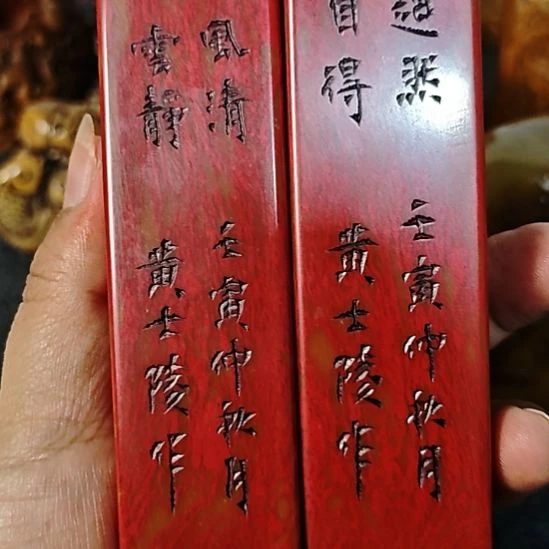 超然
自得
壬寅仲秋月
黄士陵作
風清
雲靜
壬寅仲秋月
黄士陵作